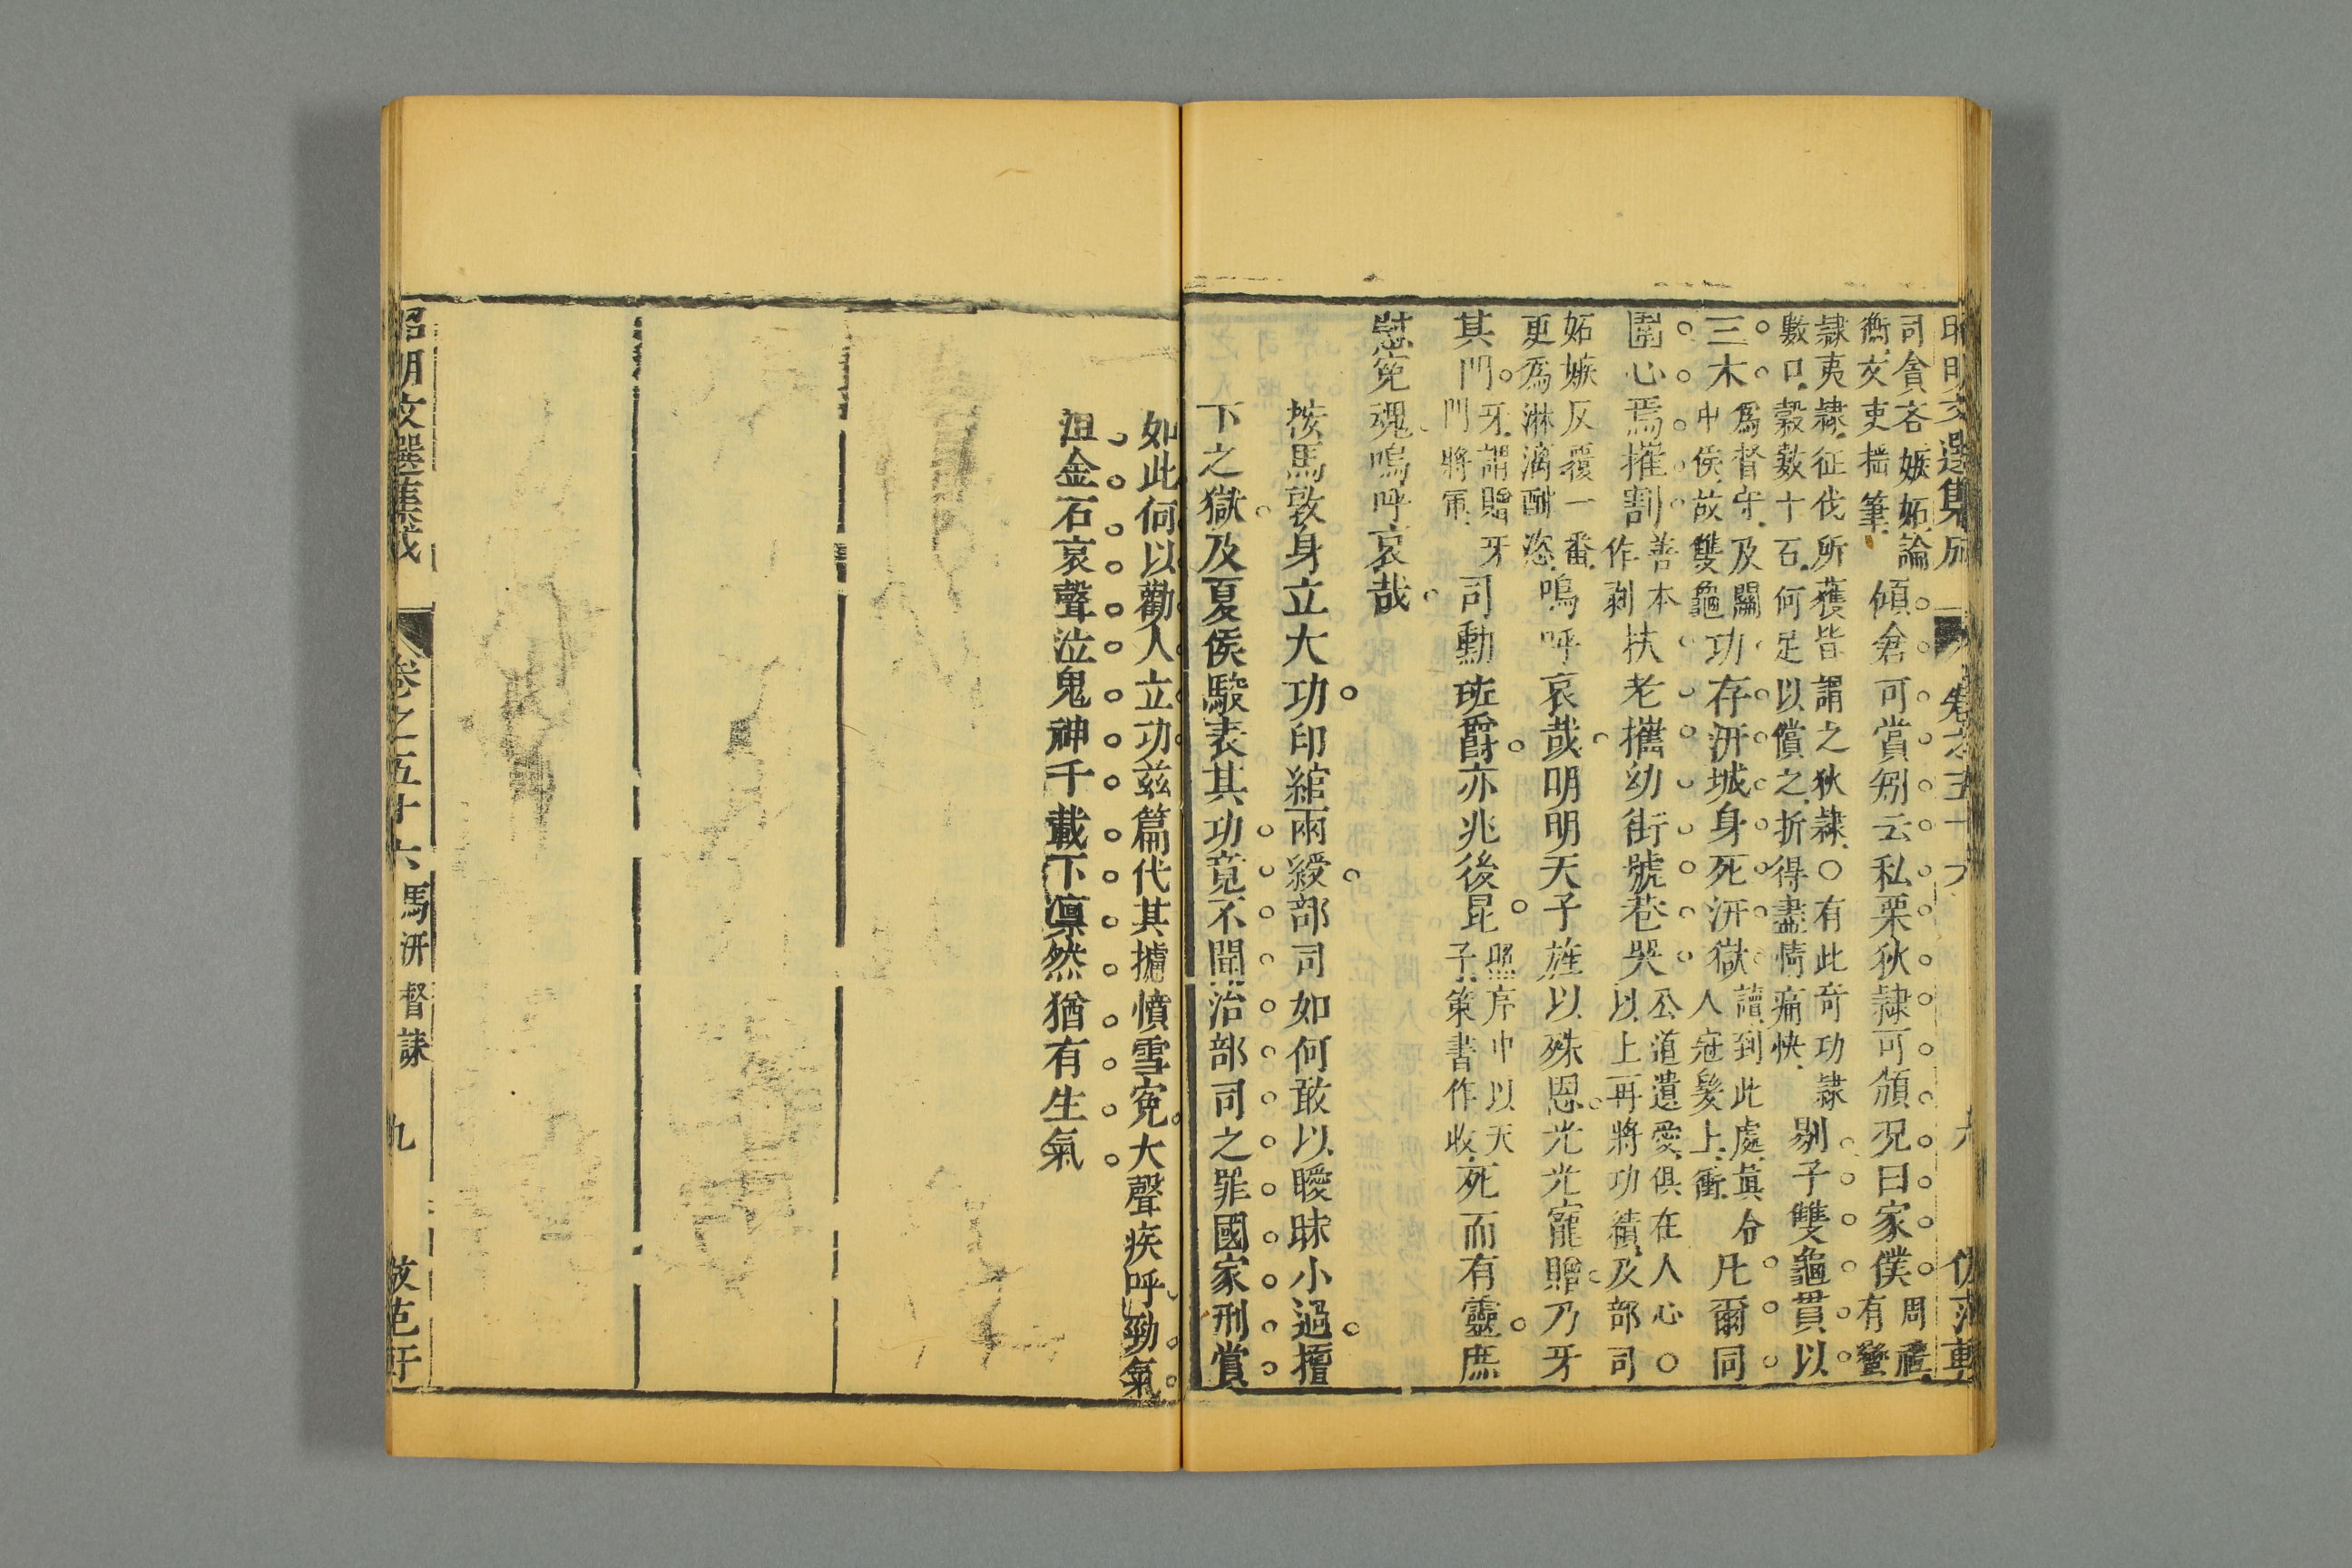 昭明文選集成 卷之五十六
司貪吝嫉妬論
衡文吏搖筆
傾倉可賞矧云私粟狄隸可頒況曰家僕
周禮
有蠻
隸夷隸征伐所獲皆謂之狄隸○有此奇功隸
數口穀數十石何足以償之折得盡情痛快
剔子雙龜貫以
三木
為督守及關
中侯故雙龜
功存汧城身死汧獄
讀到此處眞令
人冠髮上衝
凡爾同
圍心焉摧割
善本
作剥
扶老攜幼街號巷哭
公道遺愛俱在人心○
以上再將功績及部司
妬嫉反覆一番
更為淋漓酣恣
嗚呼哀哉明明天子旌以殊恩光光寵贈乃牙
其門
牙謂贈牙
門將軍
司勳班爵亦兆後昆
照序中以天
子策書作收
死而有靈庶
慰寃魂嗚呼哀哉
按馬敦身立大功印綰兩綬部司如何敢以曖昧小過擅
下之獄及夏侯駿表其功竟不聞治部司之罪國家刑賞
如此何以勸人立功兹篇代其攄憤雪寃大聲疾呼勁氣
沮金石哀聲泣鬼神千載下凛然猶有生氣
昭明文選集成 卷之五十六 馬汧督誄 九